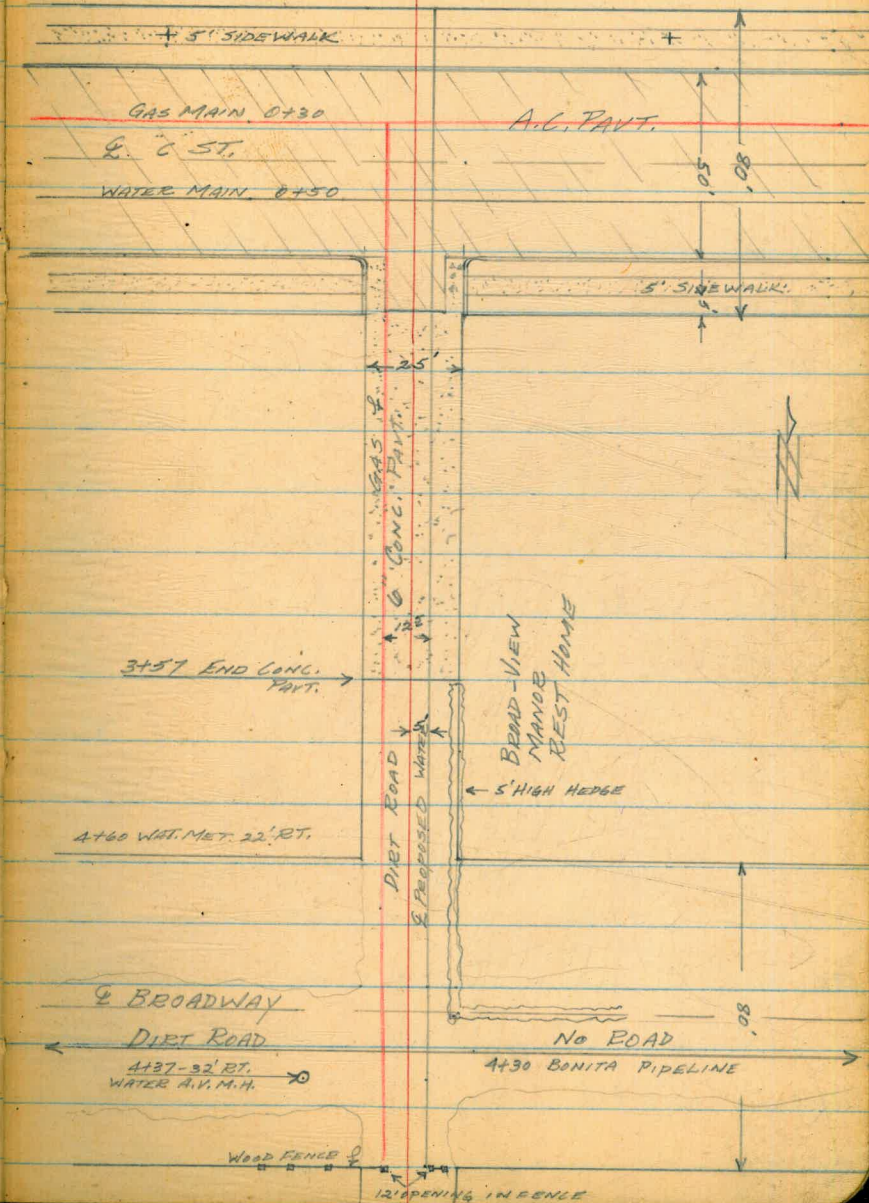 5' SIDEWALK
GAS MAIN 0+30
A.C. PAVT.
℄ C ST.
WATER MAIN 0+50
50'
80'
5' SIDEWALK
25'
GAS ℄
6" CONC. PAVT.
12'
3+57 END CONC.
PAVT.
BROAD-VIEW
MANOR
REST HOME
DIRT ROAD
℄ PROPOSED WATER
5' HIGH HEDGE
4+60 WAT. MET. 22' RT.
℄ BROADWAY
DIRT ROAD
NO ROAD
80'
4+37-32' RT.
WATER A.V.M.H.
4+30 BONITA PIPELINE
WOOD FENCE
12' OPENING IN FENCE